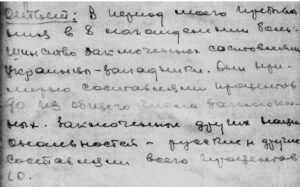 Ответ: В период моего пребыва
ния в 8 лаготделении боль
шинство заключенных составляли
украинцы-западники. Они при
мерно составляли процентов
90 из общего числа заключен
ных. Заключенные других наци
ональностей - русские и другие
составляли всего процентов
10.